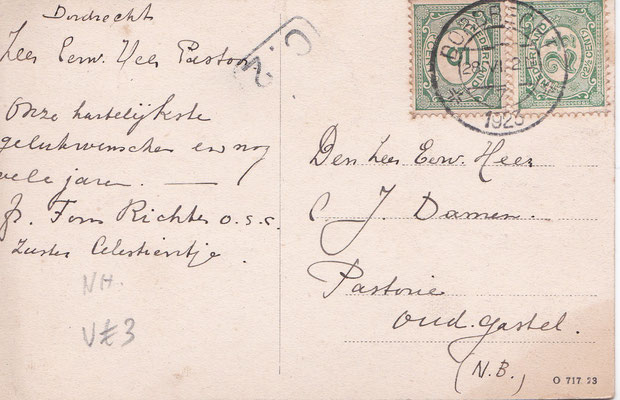 Dordrecht
Zeer Eerw. Heer Pastoor.
Onze hartelijkste
gelukwenschen en nog
vele jaren. —
fr. Fons Richter o.s.c.
zuster Celestientje.
NH.
V£3
NEDERLAND
NEDERLAND
1923
Den Zeer Eerw. Heer
J. Damen.
Pastorie
Oud-Gastel.
(N.B.)
O 717 23